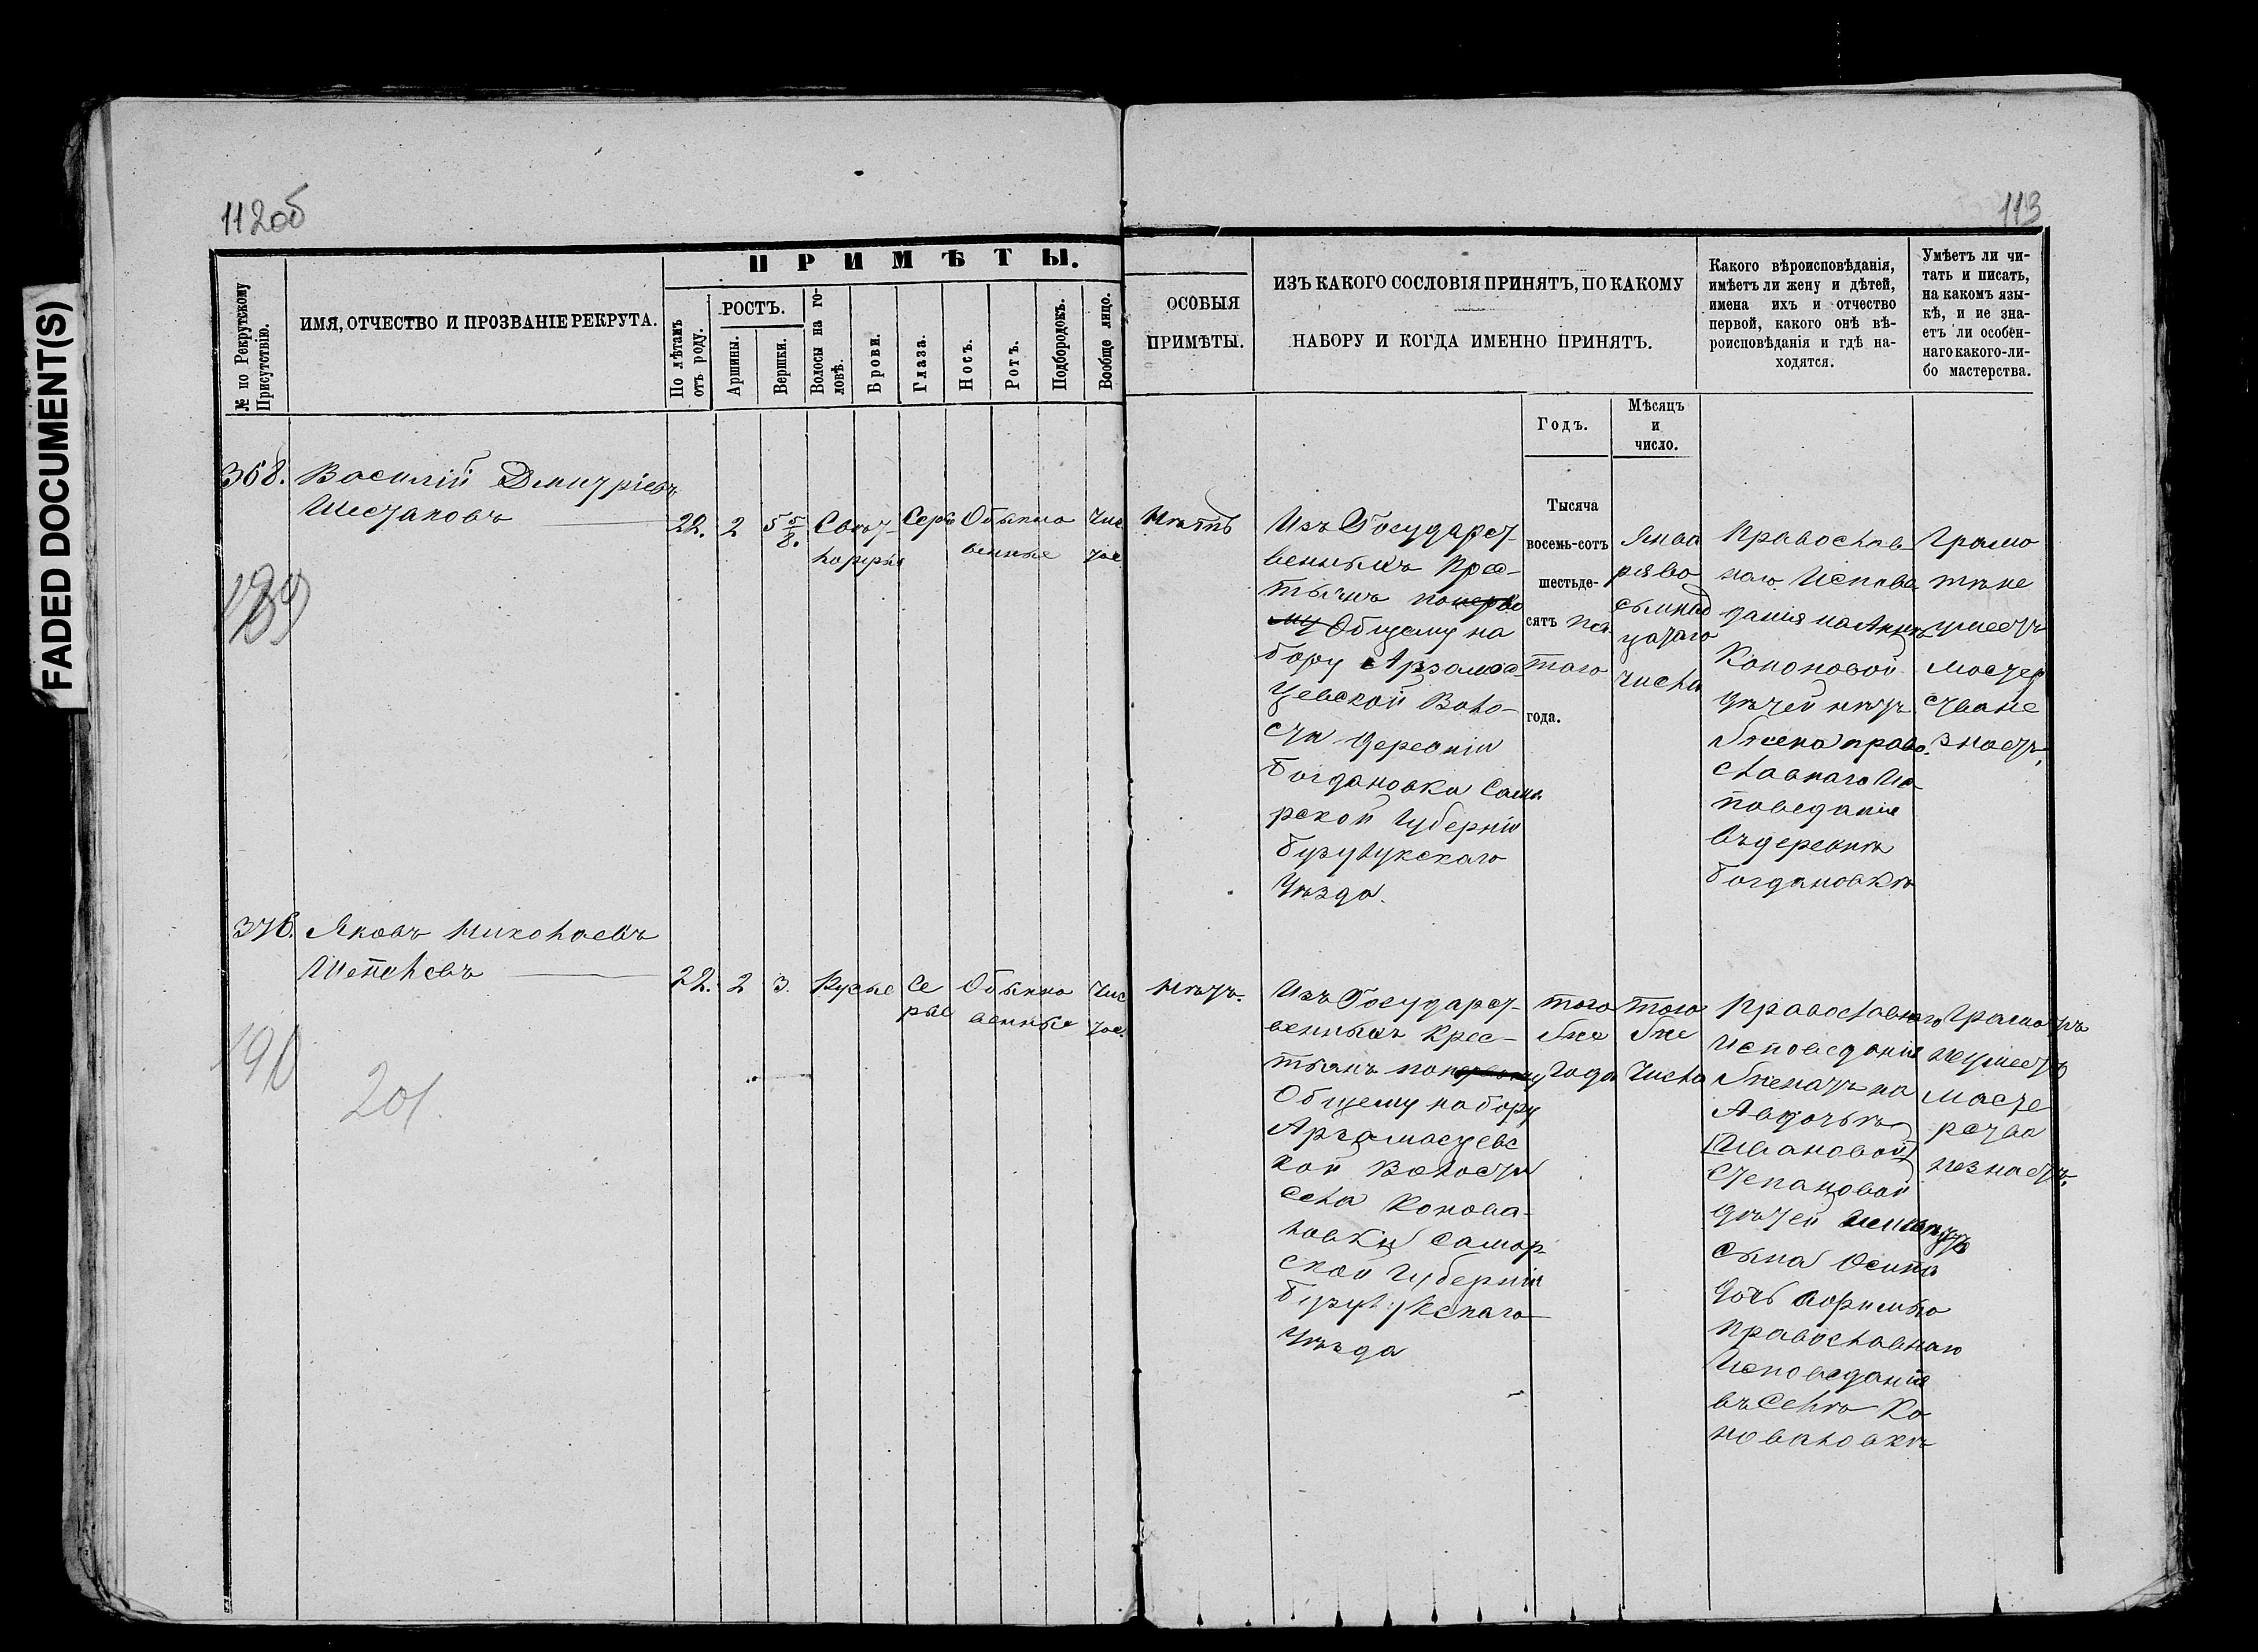 FADED DOCUMENT(S)
112об
113
№ по Рекрутскому Присутствію.
ИМЯ, ОТЧЕСТВО И ПРОЗВАНІЕ РЕКРУТА.
ПРИМѢТЫ.
По лѣтамъ отъ роду.
РОСТЪ.
Аршины.
Вершки.
Волосы на го-
ловѣ.
Брови.
Глаза.
Носъ.
Ротъ.
Подбородокъ.
Вообще лицо.
ОСОБЫЯ
ПРИМѢТЫ.
ИЗЪ КАКОГО СОСЛОВІЯ ПРИНЯТЪ, ПО КАКОМУ
НАБОРУ И КОГДА ИМЕННО ПРИНЯТЪ.
Какого вѣроисповѣданія,
имѣетъ ли жену и дѣтей,
имена ихъ и отчество
первой, какого онѣ вѣ-
роисповѣданія и гдѣ на-
ходятся.
Умѣетъ ли чи-
тать и писать,
на какомъ язы-
кѣ, и не зна-
етъ ли особен-
наго какого-ли-
бо мастерства.
Годъ.
Мѣсяцъ
и
число.
368.
Василій Дмитріевъ
Шестаковъ
22.
2
5 5/8.
Серы
Обыкно
венные
Чис
тое
Нѣтъ
Изъ Государст-
венныхъ Крес-
тьянъ поперво
му Общему на
бору Арзамас
цевской Воло-
сти деревніи
Богдановка Сама
рской Губерніи
Бузулукскаго
Уѣзда.
Тысяча
восемь-сотъ
шестьде-
сятъ пя
того
года.
Янва
ряво
семнад
цатаго
числа
Православ
наго Испове
данія на Аннѣ
Кононовой
дѣтей нѣтъ
Жена право
славнаго Ис
поведанія
въдеревнѣ
Богдановкѣ
Грамо
тѣне
умеетъ
мастер
стване
знаетъ,
189
376.
Яковъ Николаевъ
Шепелевъ
22.
2
3.
Русые
Се
рые
Обыкно
венные
Чис
тое.
Нѣтъ.
Изъ Государст-
венныхъ Крес-
тьянъ поперьвому
Общему набору
Арзамасцевс
кой Волости
Села Конова-
ловки Самар-
ской Губерніи
Бузулукскаго
Уѣзда
того
же
Года
того
же
Числа
Православнаго
Исповеданія
Женатъ на
Авдотьѣ
Ивановой
Степановой
дѣтей
сына Осипа
дочь
Православнаго
Исповеданія
въ Селѣ Ко
новаловкѣ
Грамотѣ
неумеетъ
масте
рства
незнаетъ.
190
201.